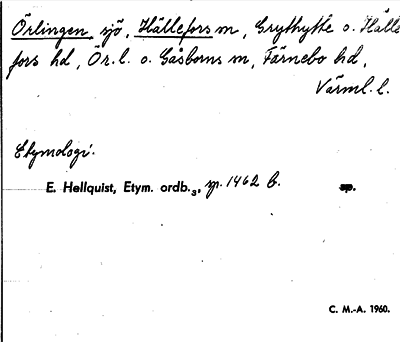 Örlingen sjö, Hällefors sn, Grythytte o. Hälle
fors hd, Ör. l. o. Gåsborns sn, Färnebo hd,
Värml. l.
Etymologi.
E. Hellquist, Etym. ordb.₃, sp. 1462 b.
C. M.-A. 1960.